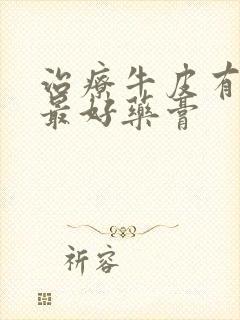 治療牛皮有
最好藥膏
祈容